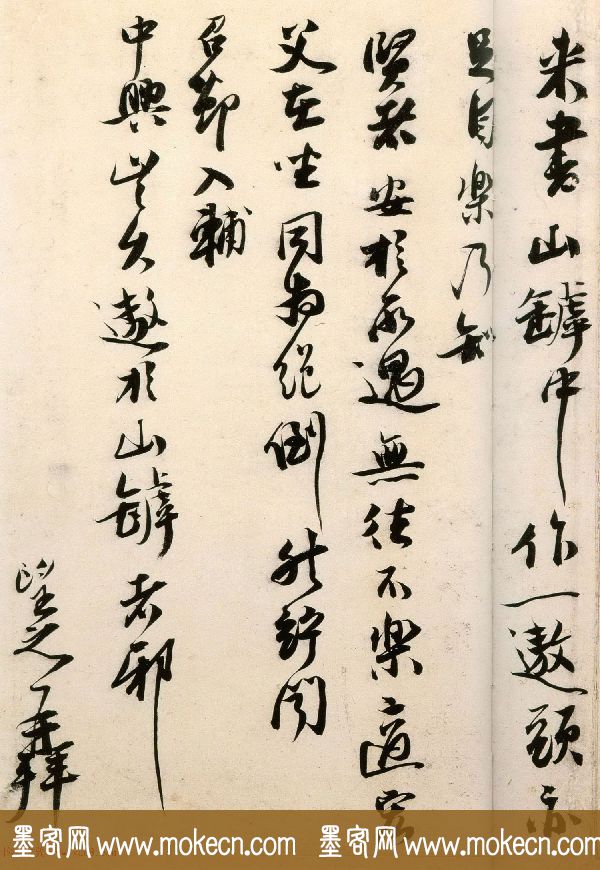 来書山罅中作一遨頭亦
足自樂乃知
賢者安於所遇無往不樂適
父在坐同為絕倒然竚聞
召節入輔
中興豈久遨於山罅者邪
望之再拜
墨客网 www.mokecn.com 墨客网 www.mokecn.com